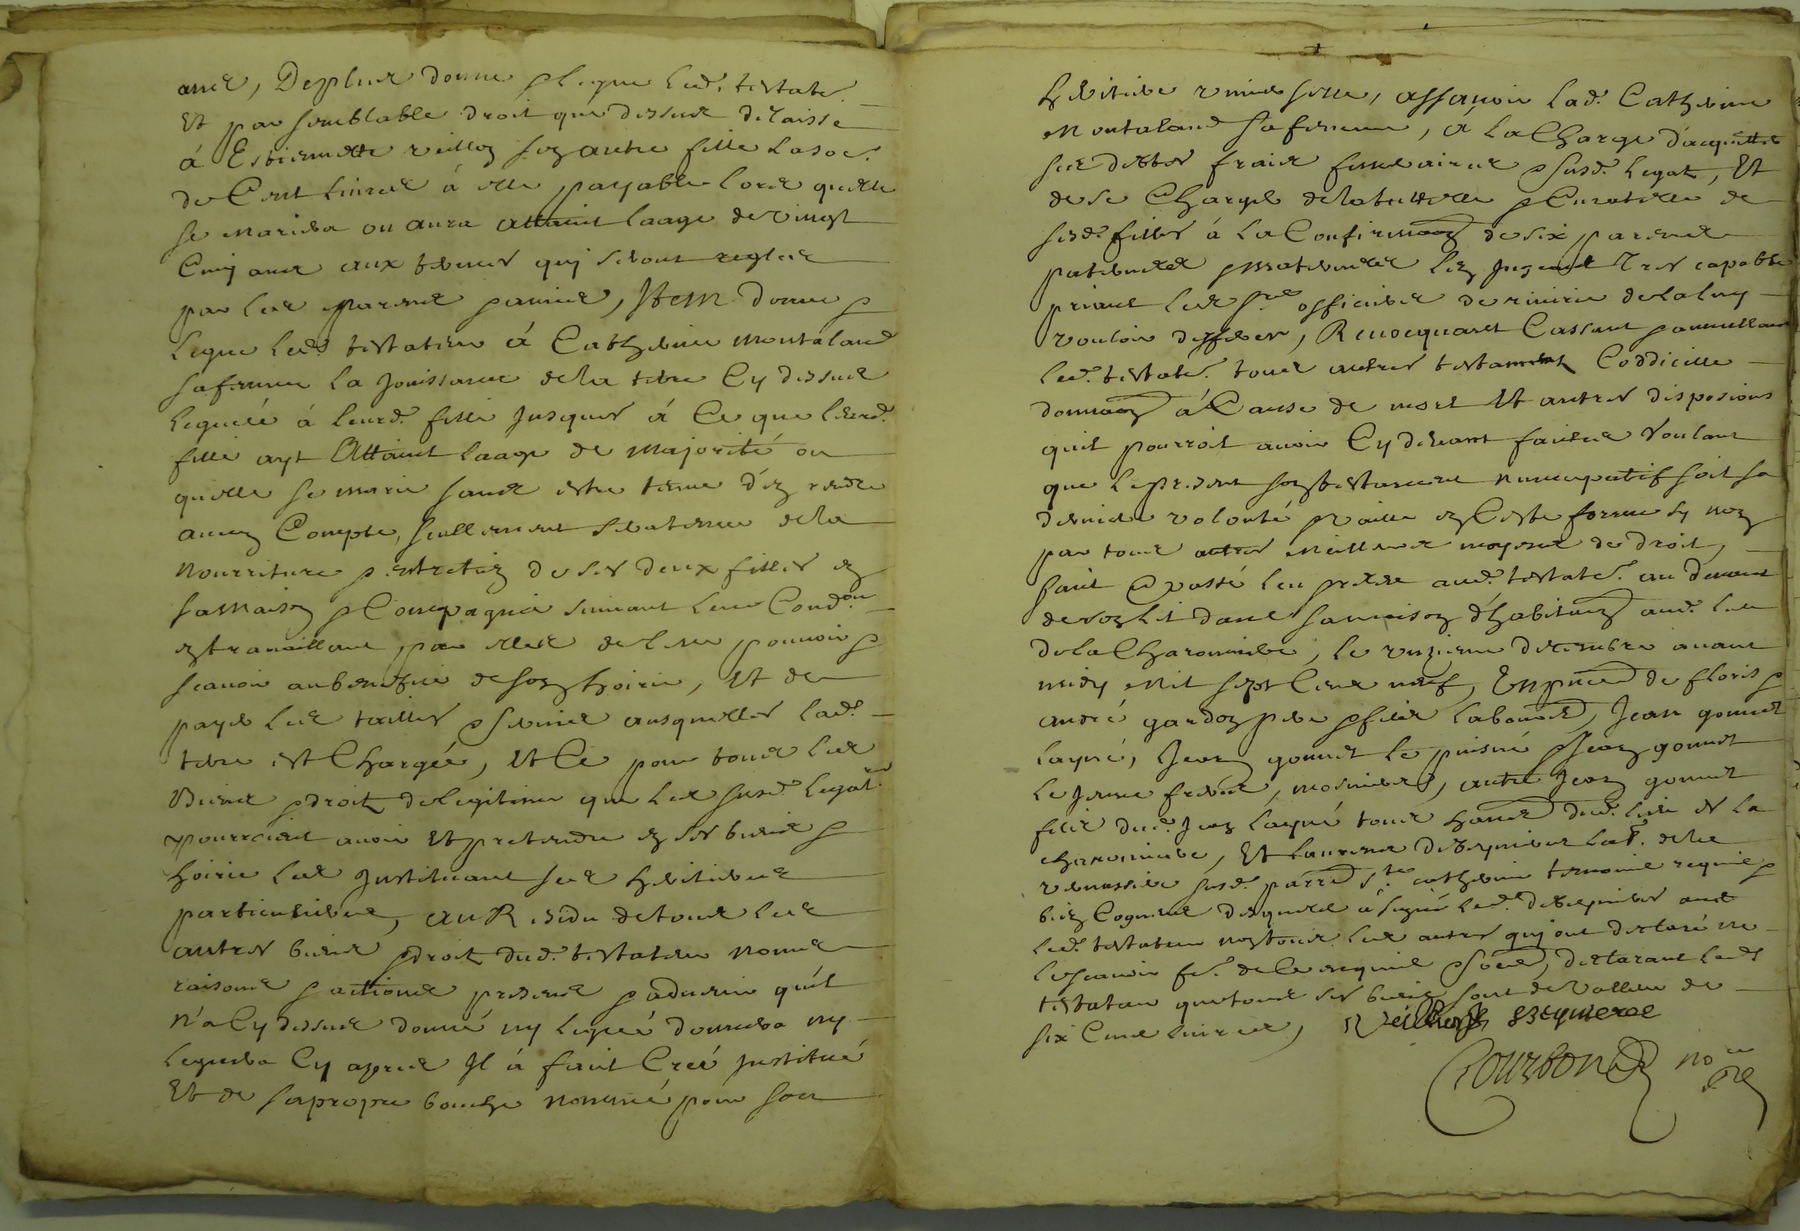 ans, Desplus donne & legue led. testate.
Et par semblable droit que dessus delaisse
à Estiennette veillon son autre fille la so.e
de Cent livres à elle payable lors quelle
se mariera ou aura attaint laage de vingt
Cinq ans aux termes quj seront reglés
par les parens & amis, Item donne &
legue led. testateur à Catherine montaland
sa femme la Jouissance de la terre Cy dessus
leguée à leurd. fille Jusques à Ce que leurd.
fille ayt Attaint laage de majorité ou
quelle se marie sans estre tenue d'en rendre
aucun Compte, seullement sera tenue de la
nourriture & entretien de ses deux filles en
sa maison & Compagnie suivant leur Cond.on
en travaillant par elles de leur pouvoir &
scavoir au benefice de son hoirie, Et de
payer les tailles & servis ausquelles lad.
terre est Chargée, Et Ce pour tous les
Biens & droits de legitime que les susd. legat.
pourroient avoir Et pretendre en ses biens &
hoirie les Instituant ses heritieres
particulieres, au Residu de tous les
autres biens & droits dud. testateur noms
raisons & actions presens & advenir qu'il
n'a Cy dessus donné ny legué donnera ny
leguera Cy apres Il à fait Creé Institué
Et de sa propre bouche nommé pour son
heritiere universelle, assavoir lad. Catherine
Montaland sa femme, à la Charge d'acquitter
ses debtes frais funeraires & susd. legats, Et
de se Charger de la tutelle & Curatelle de
sesd. filles à la Confirmaon de six parens
paternels & maternels les Jugeant Tres capable
priant les srs officiers de riviere de la luy
vouloir defferer, Revocquant Cassant & annullant
led. testate. tous autres testaments Coddicille
donnaon à Cause de mort Et autres disposions
quil pourroit avoir Cy devant faites Voulant
que le present son testament nuncupatif soit sa
derniere volonté & vaille en Ceste forme sy non
par tous autres meilleurs moyens de droit,
fait & passé leu & relu aud. testate. au devant
de son lit dans sa maison d'habitaon aud. lieu
de la Charonniere, le unzieme decembre avant
midy mil sept Cens neuf, En pnce de floris &
andré gardon pere & fils laboure, Jean gonnet
layné, Jean gonnet le puisné & Jean gonnet
le Jeune freres, mosniers, autre Jean gonnet
fils dud. Jean layné tous habits dud. lieu de la
charonniere, Et laurens desequieres lab. de la
susd. parre s.te catherine temoins requis &
bien Cogneus desquels à signé led. desequieres avec
led. testateur non tous les autres quj ont declaré ne
le scavoir fe. de Ce enquis & some, declarant led.
testateur que tous ses biens sont de valleur de
six Cens livres, Veilhon exequieres
Courbon no.re